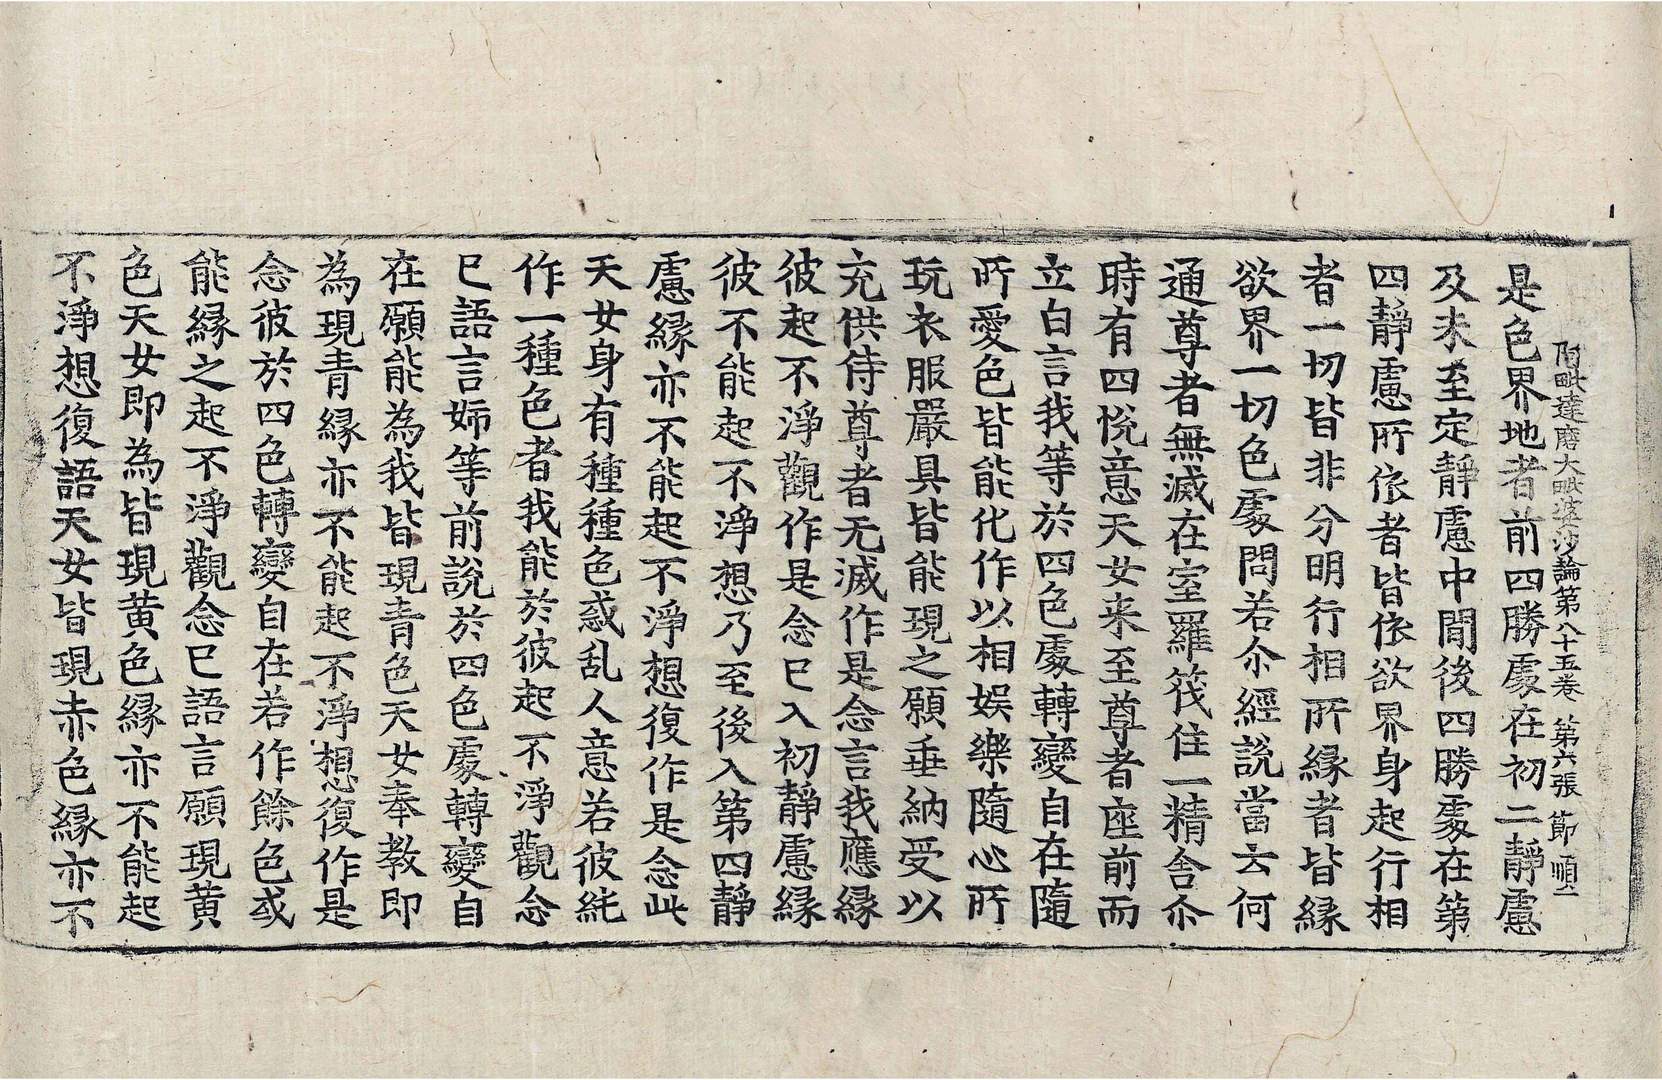 阿毗達磨大毗婆沙論第八十五卷 第六張 節 順
是色界地者前四勝處在初二靜慮
及未至定靜慮中閒後四勝處在第
四靜慮所依者皆依欲界身起行相
者一切皆非分明行相所緣者皆緣
欲界一切色處問若尒經說當云何
通尊者無滅在室羅筏住一精舍尒
時有四悅意天女来至尊者座前而
立白言我等於四色處轉變自在隨
所愛色皆能化作以相娛樂隨心所
玩衣服嚴具皆能現之願垂納受以
充供侍尊者无滅作是念言我應緣
彼起不淨觀作是念已入初靜慮緣
彼不能起不淨想乃至後入第四靜
慮緣亦不能起不淨想復作是念此
天女身有種種色惑乱人意若彼純
作一種色者我能於彼起不淨觀念
已語言姉等前說於四色處轉變自
在願能為我皆現青色天女奉教即
為現青緣亦不能起不淨想復作是
念彼於四色轉變自在若作餘色或
能緣之起不淨觀念已語言願現黄
色天女即為皆現黄色緣亦不能起
不淨想復語天女皆現赤色緣亦不